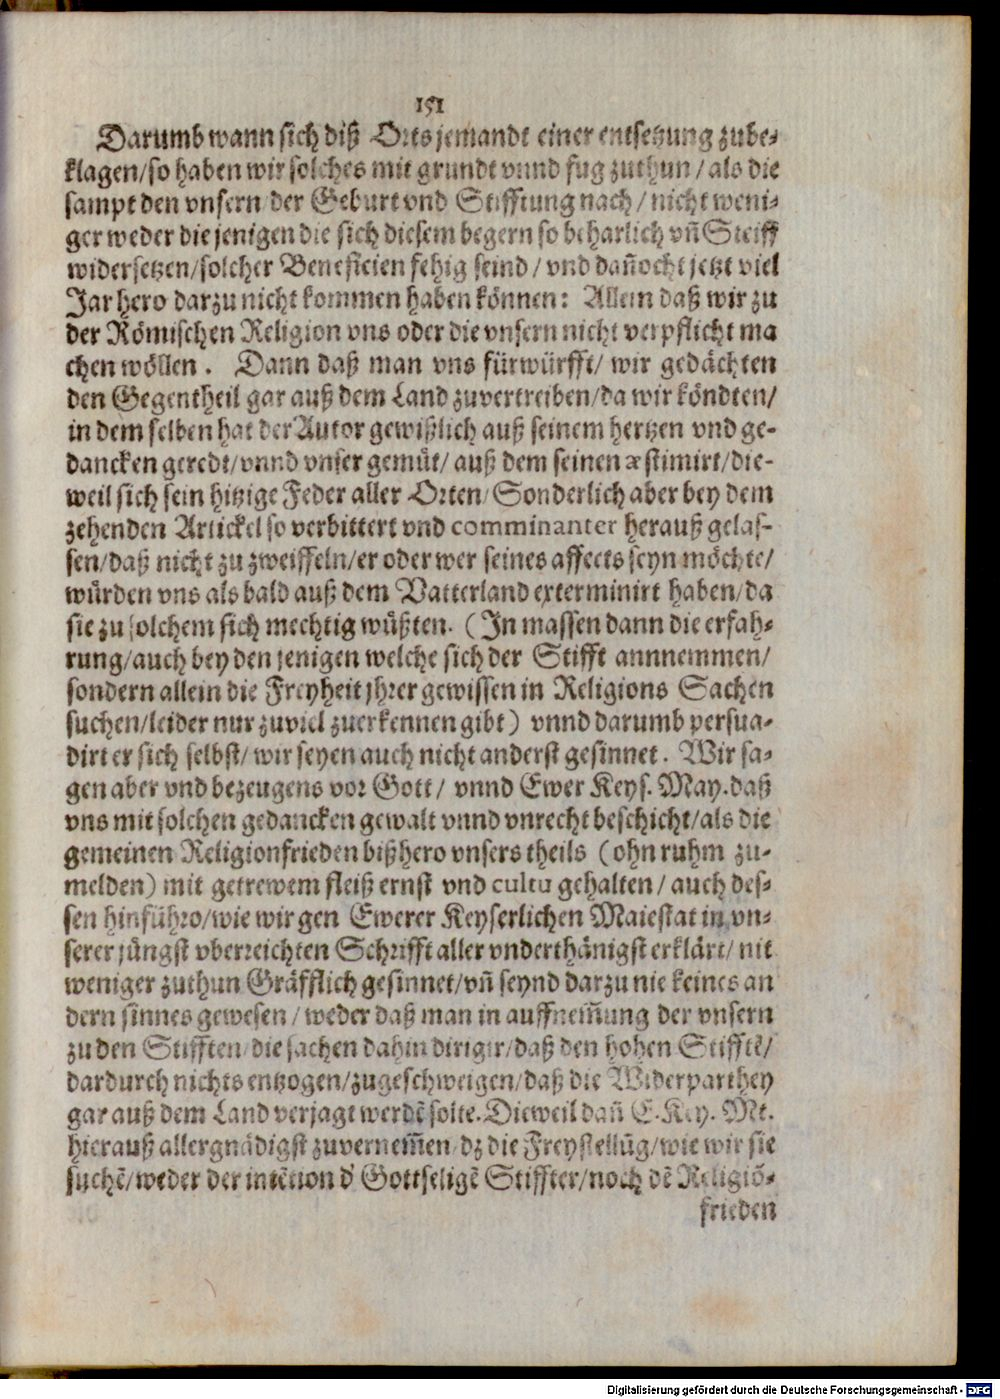 151
Darumb wann sich diß Orts jemandt einer entsetzung zube-
klagen/so haben wir solches mit grundt vnnd fug zuthun/als die
sampt den vnsern der Geburt vnd Stifftung nach/nicht weni-
ger weder die jenigen die sich diesem begern so beharlich vn̄ Steiff
widersetzen/solcher Beneficien fehig seind/vnd dan̄ocht jetzt viel
Jar hero darzu nicht kommen haben können: Allein daß wir zu
der Römischen Religion vns oder die vnsern nicht verpflicht ma
chen wöllen. Dann daß man vns fürwürfft/wir gedächten
den Gegentheil gar auß dem Land zuvertreiben/da wir köndten/
in dem selben hat der Autor gewißlich auß seinem hertzen vnd ge-
dancken geredt/vnnd vnser gemüt/auß dem seinen æstimirt/die-
weil sich sein hitzige Feder aller Orten/Sonderlich aber bey dem
zehenden Artickel so verbittert vnd comminanter herauß gelas-
sen/daß nicht zu zweiffeln/er oder wer seines affects seyn möchte/
würden vns als bald auß dem Vatterland exterminirt haben/da
sie zu solchem sich mechtig wüßten. (In massen dann die erfah-
rung/auch bey den jenigen welche sich der Stifft annnemmen/
sondern allein die Freyheit jhrer gewissen in Religions Sachen
suchen/leider nur zuviel zuerkennen gibt) vnnd darumb persua-
dirt er sich selbst/wir seyen auch nicht anderst gesinnet. Wir sa-
gen aber vnd bezeugens vor Gott/vnnd Ewer Keys. May. daß
vns mit solchen gedancken gewalt vnnd vnrecht beschicht/als die
gemeinen Religionfrieden bißhero vnsers theils (ohn ruhm zu-
melden) mit getrewem fleiß ernst vnd cultu gehalten/auch des-
sen hinführo/wie wir gen Ewerer Keyserlichen Maiestat in vn-
serer jüngst vberreichten Schrifft aller vnderthänigst erklärt/nit
weniger zuthun Gräfflich gesinnet/vn̄ seynd darzu nie keines an
dern sinnes gewesen/weder daß man in auffnem̄ung der vnsern
zu den Stifften die sachen dahin dirigir/daß den hohen Stifftē/
dardurch nichts entzogen/zugeschweigen/daß die Widerparthey
gar auß dem Land verjagt werdē solte. Dieweil dan̄ E. Key. Mt.
hierauß allergnädigst zuvernem̄en/dz die Freystellūg/wie wir sie
suchē/weder der intētion d' Gottseligē Stiffter/noch dē Religiō-
frieden
Digitalisierung gefördert durch die Deutsche Forschungsgemeinschaft - DFG